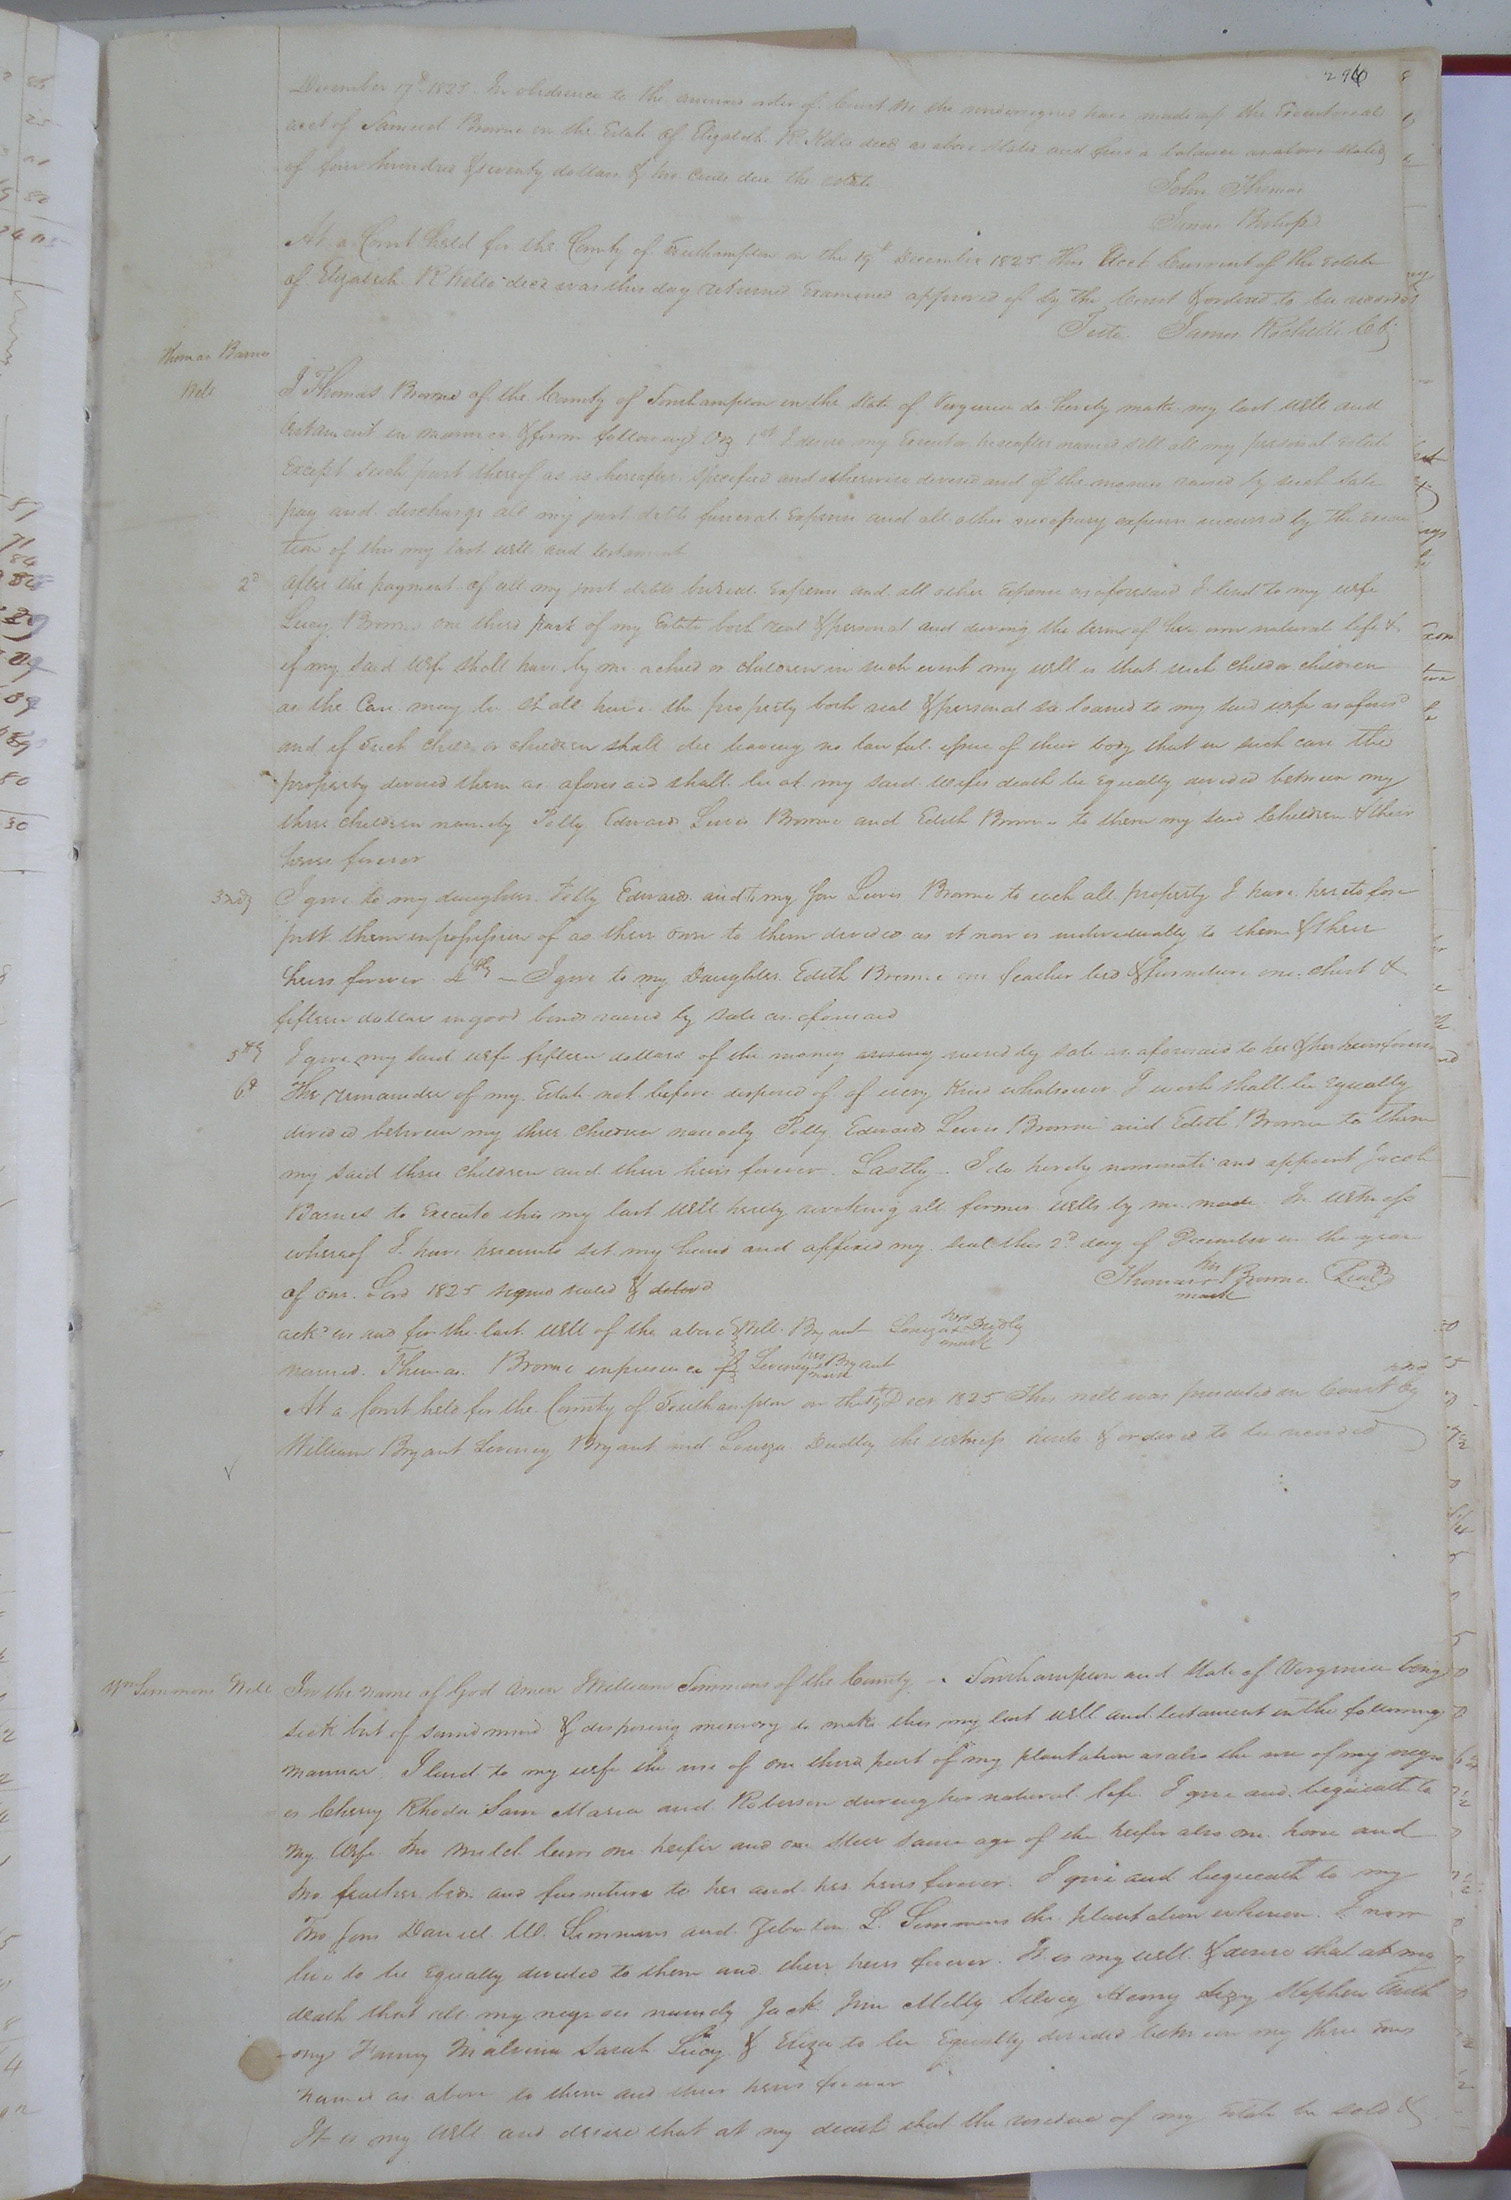 296
December 19th 1825 In obedience to the annexed order of Court We the undersigned have made up the Executorial
acct of Samuel Browne on the Estate of Elizabeth R Kello decd as above stated and find a balance as above stated
of four hundred & seventy dollars & two Cents due the estate
John Thomas
James Bishop
At a Court held for the County of Southampton on the 19th December 1825 This Acct Current of the estate
of Elizabeth R Kello decd was this day returned Examined approved of by the Court & ordered to be recorded
Teste James Rochelle Clk
Thomas Barnes
Will
I Thomas Browne of the County of Southampton in the State of Virginia do hereby make my last will and
testament in manner & form following Viz 1st I desire my Executor hereafter named sell all my personal estate
Except such part thereof as is hereafter specified and otherwise devised and of the monies raised by such sale
pay and discharge all my just debts funeral Expense and all other necessary expense incurred by the Execu
tion of this my last will and testament
2d After the payment of all my just debts burial Expense and all other Expense as aforesaid I lend to my wife
Lucy Browne one third part of my Estate both real & personal and during the term of her own natural life &
if my said wife shall have by me a child or children in such event my will is that such child or children
as the Case may be shall have the property both real & personal so loaned to my said wife as aforesd
and if such child or children shall die leaving no lawful issue of their body that in such case the
property devised them as aforesaid shall be at my said wifes death be Equally devided between my
three children namely Polly Edwards Lewis Browne and Edith Browne to them my said Children & their
heirs forever
3rdly I give to my daughter Polly Edwards and to my son Lewis Browne to each all property I have heretofore
putt them in possession of as their own to them devided as it now is individually to them & their
heirs forever 4thly — I give to my Daughter Edith Browne one feather bed & furniture one chest &
fifteen dollars in good bonds raised by sale as aforesaid
5thly I give my said wife fifteen dollars of the money arising raised by sale as aforesaid to her & her heirs forever
6th The remainder of my Estate not before disposed of of every kind whatsoever I wish shall be Equally
devided between my three children namely Polly Edwards Lewis Browne and Edith Browne to them
my said three children and their heirs forever. Lastly. I do hereby nominate and appoint Jacob
Barnes to Execute this my last will hereby revoking all former wills by me made In witness
whereof I have hereunto set my hand and affixed my seal this 2d day of December in the year
of our Lord 1825 signed sealed & deliverd Thomas his mark Browne Seal
ackd as and for the last will of the above Will. Bryant Louiza her mark Dudley
named Thomas Browne in presence of Leveney her mark Bryant
At a Court held for the County of Southampton on the 19th Decr 1825 This will was presented in Court by
William Bryant Leveney Bryant and Louiza Dudley the witness hereto & ordered to be recorded
Wm Simmons Will In the name of God Amen I William Simmons of the County Southampton and State of Virginia being
sick but of sound mind & disposing memory do make this my last will and testament in the following
manner. I lend to my wife the use of one third part of my plantation as also the use of my negro
es Cherry Rhoda Sam Maria and Roberson during her natural life I give and bequeath to
my wife two milch cows one heifer and one steer same age of the heifer also one horse and
two feather beds and furniture to her and her heirs forever. I give and bequeath to my
Two sons Daniel W. Simmons and Zebulon L. Simmons the plantation whereon I now
live to be Equally divided to them and their heirs forever. It is my will & desire that at my
death that all my negroes namely Jack Jim Milly Silvey Henry Lizzy Stephen Anth
ony Fanny Malvina Sarah Lucy & Eliza to be Equally devided between my three sons
named as above to them and their heirs forever
It is my will and desire that at my death that the residue of my Estate be sold &